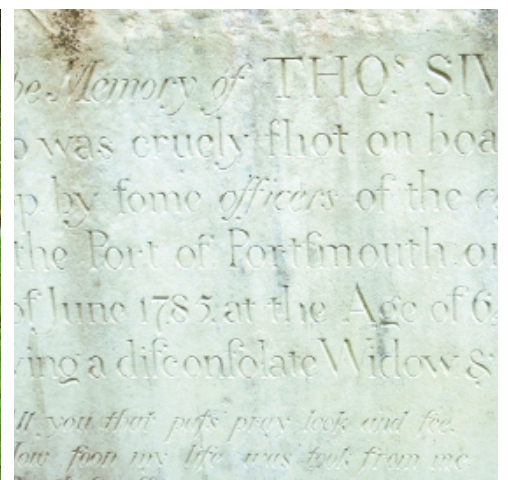 he Memory of THOˢ. SIV
o was cruely ſhot on boa
p by ſome officers of the c
the Port of Portſmouth on
of June 1785 at the Age of 6
ving a diſconſolate Widow &
ll you that paſs pray look and ſee
How ſoon my life was took from me